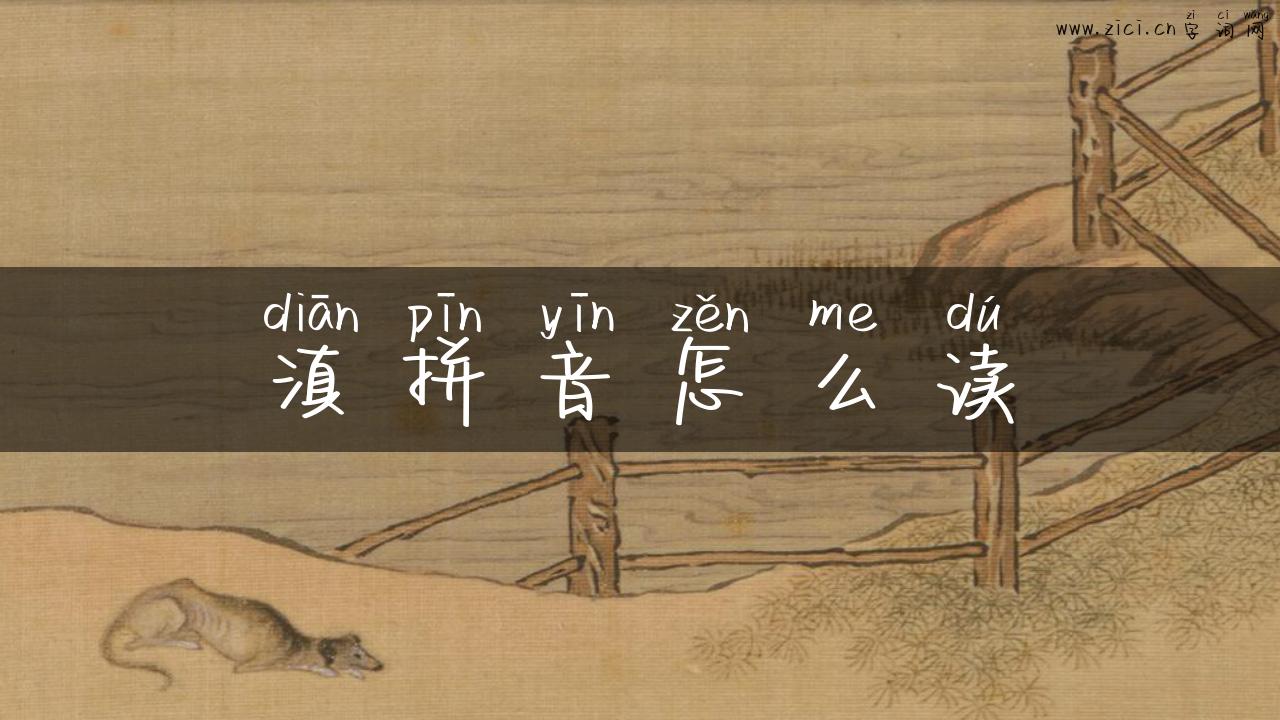 zì cí wǎng
www.zici.cn 字词网
diān pīn yīn zěn me dú
滇拼音怎么读